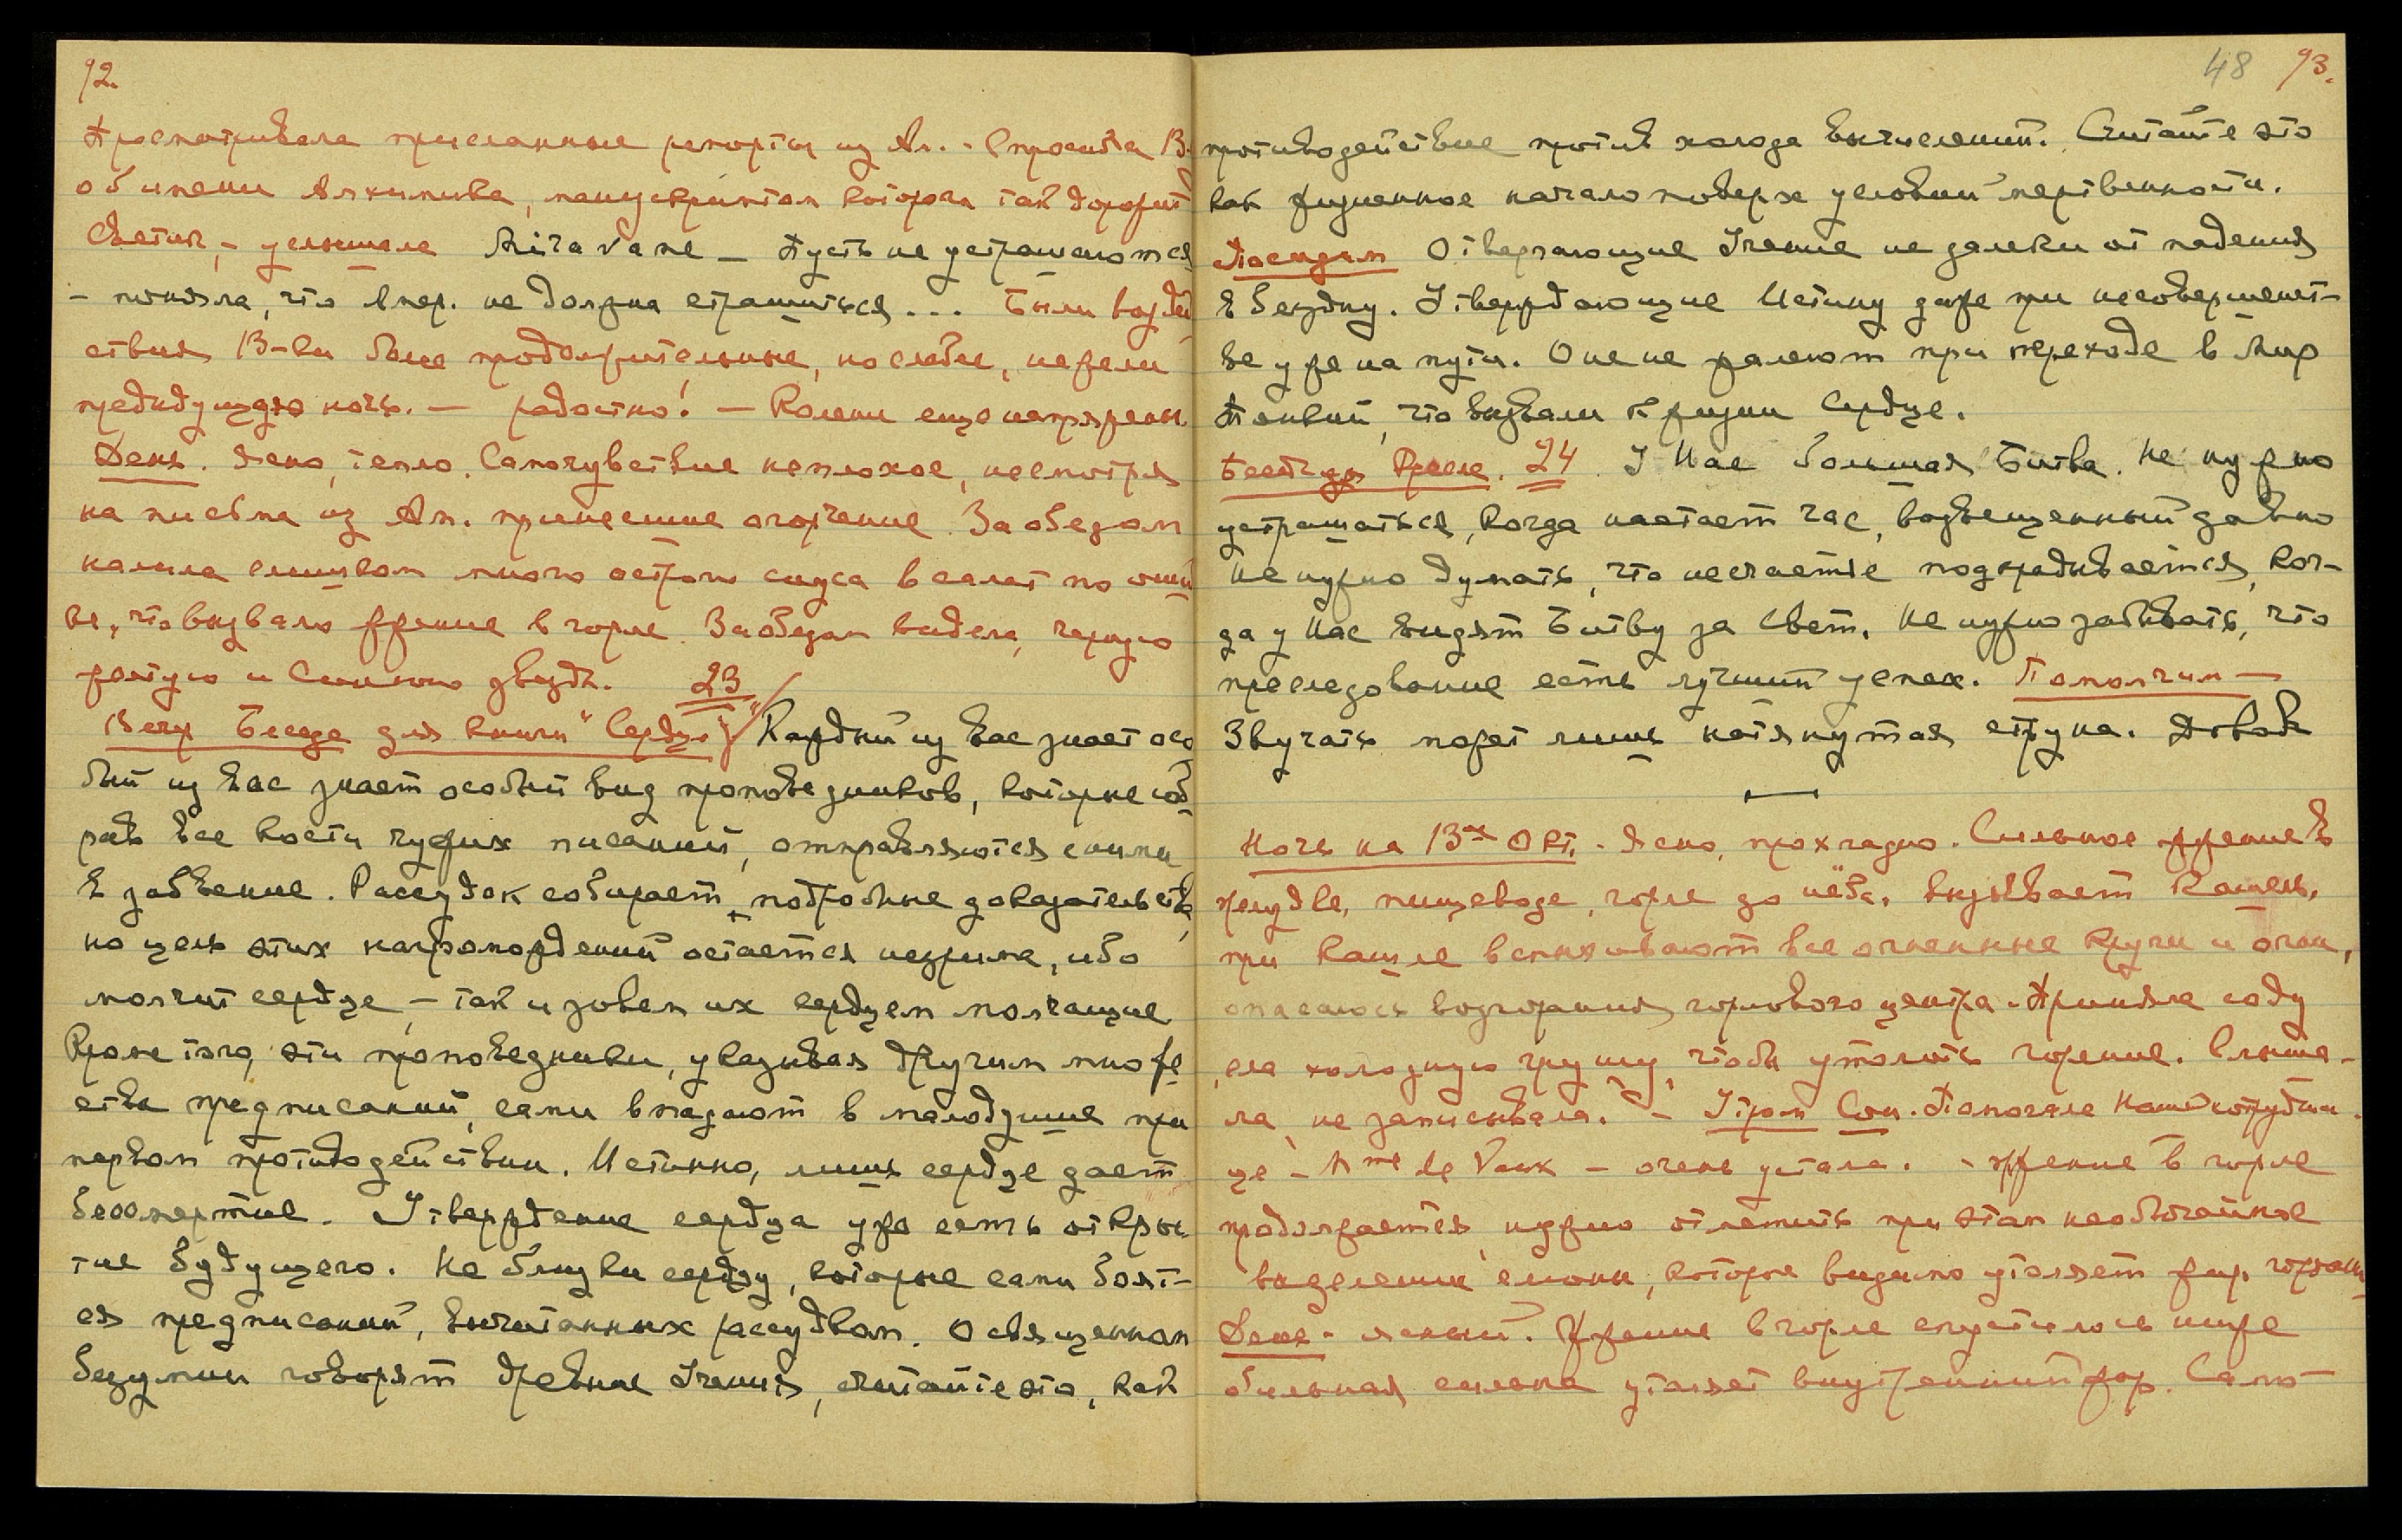 92.
Просматривала присланные репорты из Ам. - Спросила В.
об имени Алхимика, манускриптом которого так дорожит
Светик, - услышала Miravane - Пусть не устрашаются
- поняла, что впер. не должна страшиться... Были воздей
ствия В-ки более продолжительные, но слабее, нежели
предыдущую ночь. - радостно! - Колени еще напряжен.
День. Ясно, тепло. Самочувствие неплохое, несмотря
на письма из Ам. принесшие огорчение. За обедом
налила слишком много острого соуса в салат по ошиб
ке, что вызвало жжение в горле. За обедом видела, черную
желтую и Синюю звезды. 23
Вечер Беседа для книги "Сердце" Каждый из вас знает осо
бый из вас знает особый вид проповедников, которые соб
рав все кости чужих писаний, отправляются с ними
в забвение. Рассудок собирает подробные доказательства,
но цель этих нагромождений остается незрима, ибо
молчит сердце, - так и зовем их сердцем молчащие
Кроме того, эти проповедники, указывая другим множе
ства предписаний, сами впадают в малодушие при
первом противодействии. Истинно, лишь сердце дает
бессмертие. Утверждение сердца уже есть откры
тие будущего. Не близки сердцу, которые сами боят-
ся предписаний, вычитанных рассудком. О священном
безумии говорят древние Учения, считайте это, как
48 93.
противодействие против холода вычислений. Считайте это
как жизненное начало поверх условий мертвенности.
Посидим Отвергающие Учение не далеки от падения
в бездну. Утверждающие Истину даже при несовершенст-
ве уже на пути. Они не жалеют при переходе в Мир
Тонкий, что вызвали к жизни Сердце.
24 У Нас большая Битва. Не нужно
устрашаться, когда настает час, возвещенный давно
Не нужно думать, что несчастье подкрадывается, ког-
да у Нас видят Битву за Свет. Не нужно забывать, что
преследование есть лучший успех. Помолчим -
Звучать может лишь натянутая струна. Довольно
Ночь на 13ое Окт. - Ясно, прохладно. Сильное жжение в
желудке, пищеводе, горле до нёба, вызывает кашель,
при кашле вспыхивают все огненные круги и огни,
опасаюсь возгорания горлового центра. Приняла соду
ела холодную грушу, чтобы утолить горение. Слыша-
ла, не записывала. - Утром Сон. Помогала Нашей сотрудни
це - Mme de Vaux - очень устала. - жжение в горле
продолжается, нужно отметить при этом необычайное
выделение слюны, которое видимо утоляет жар гортани
День - ясный. Жжение в горле спустилось ниже
обильная слюна утоляет внутренний жар. Само-